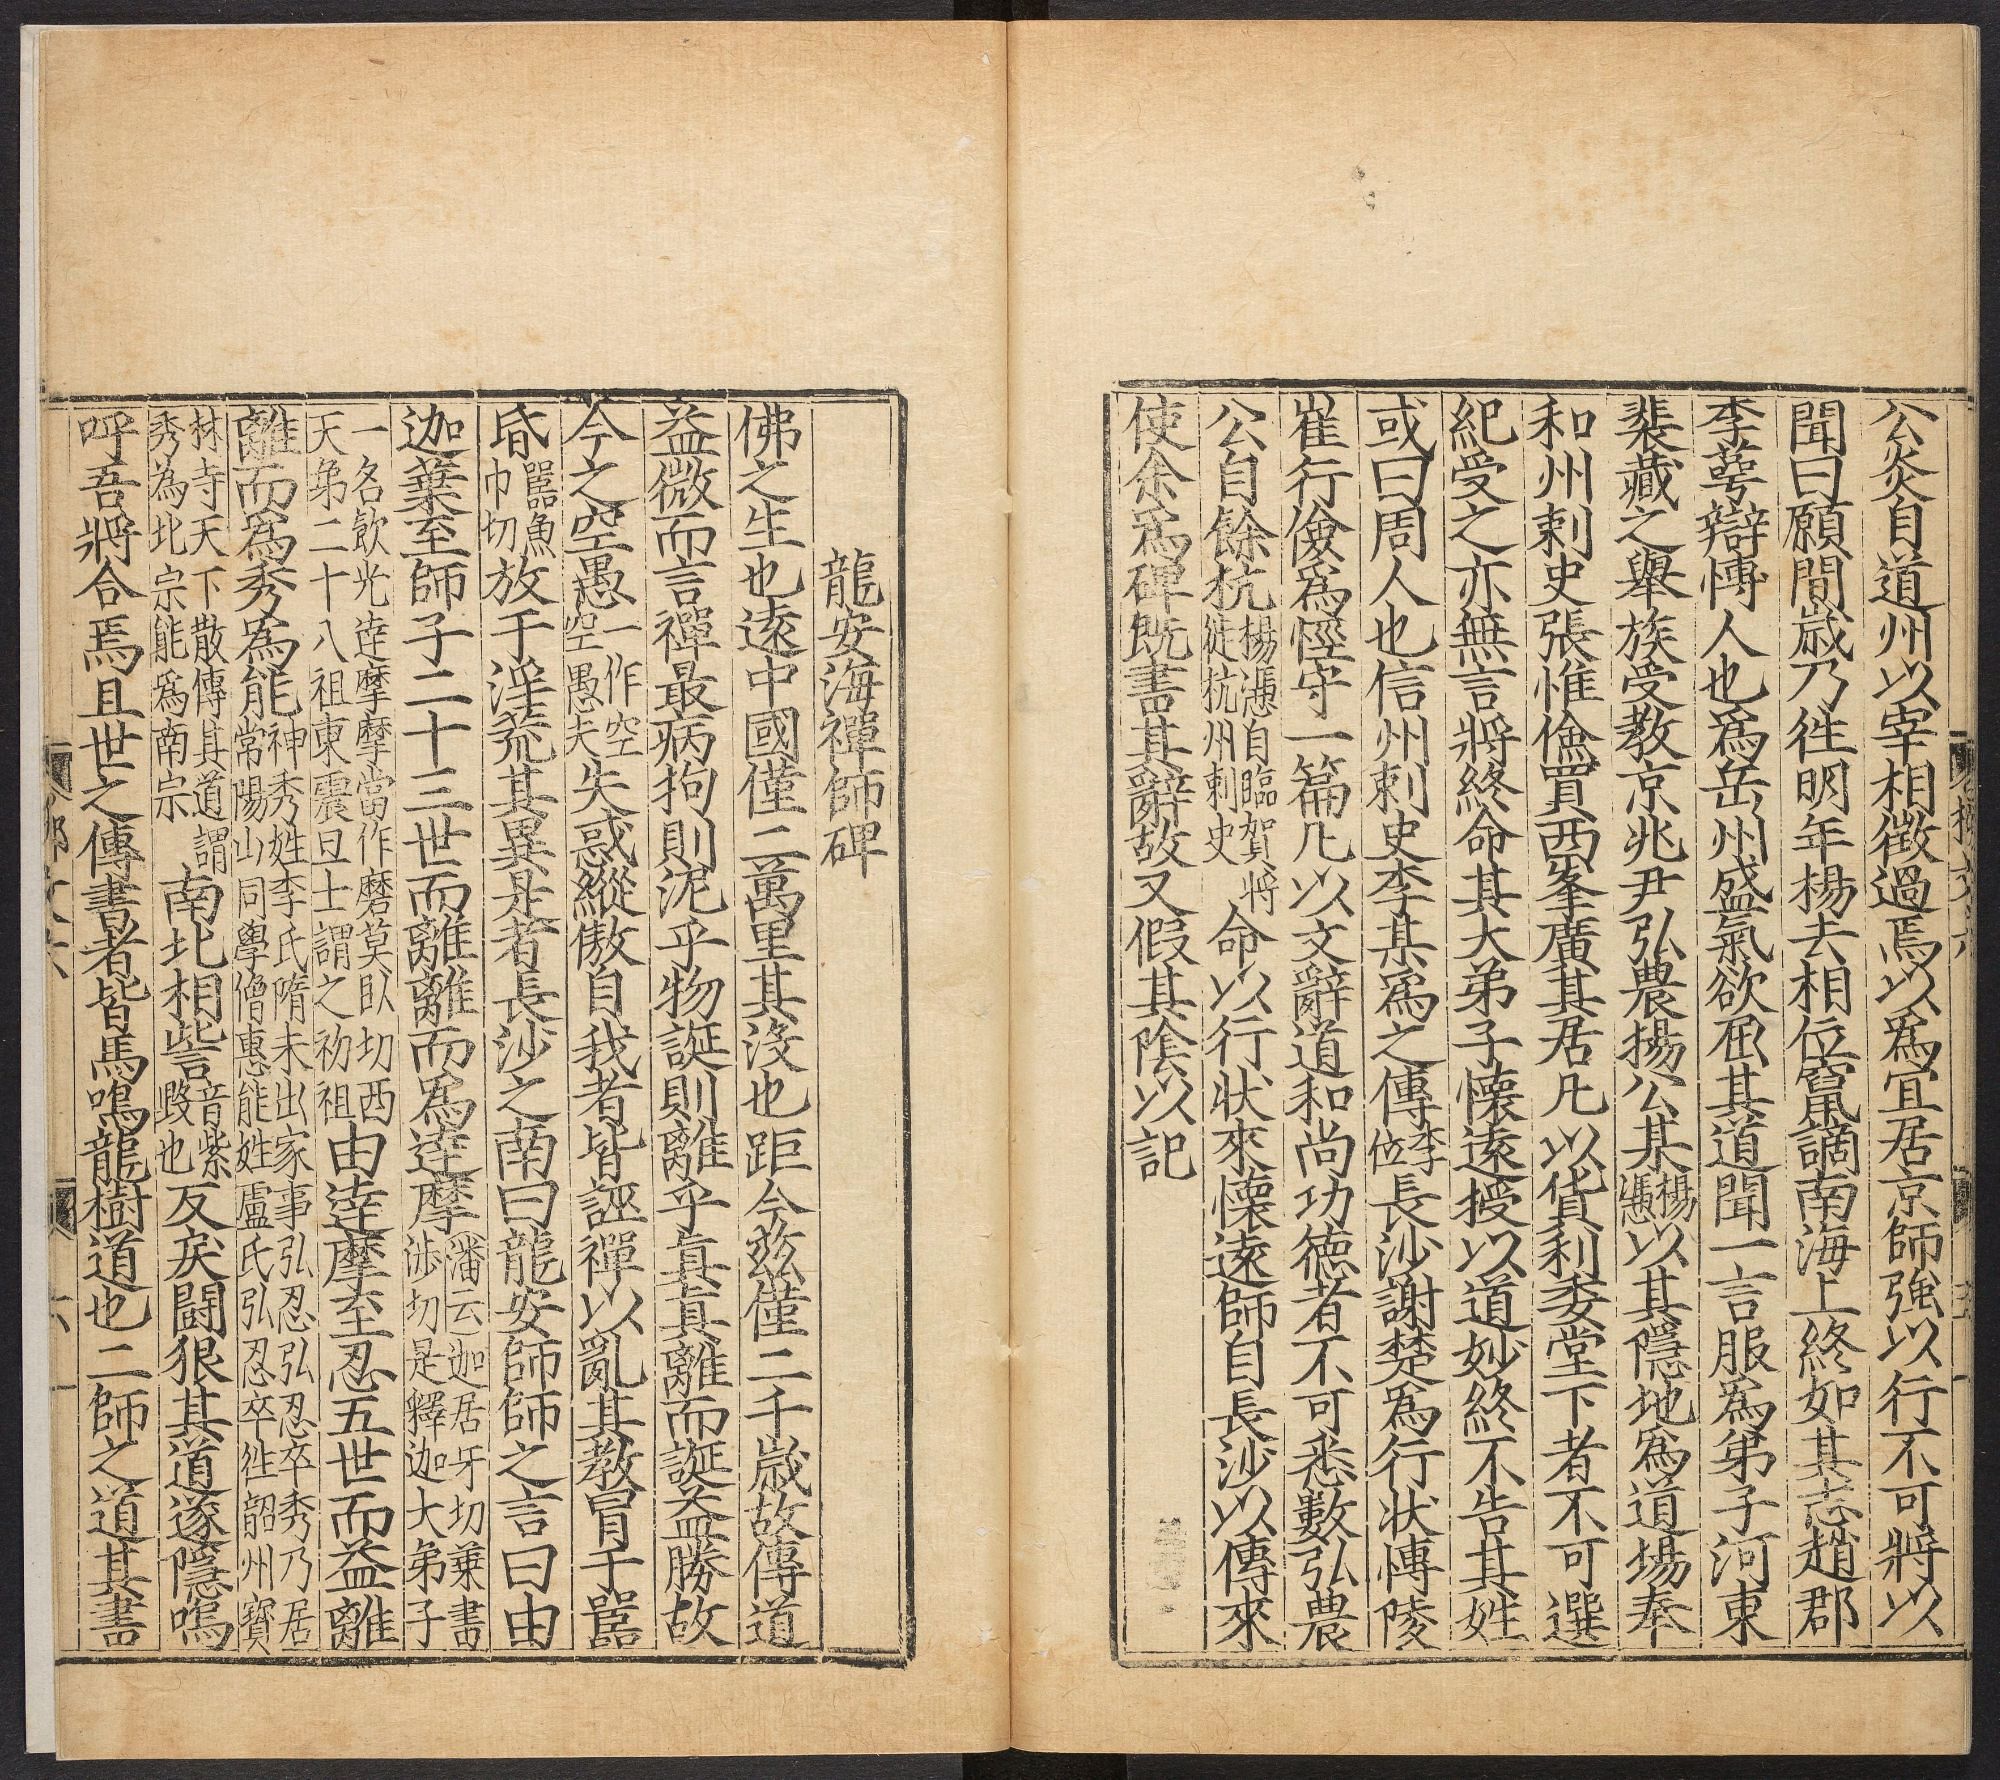 公炎自道州以宰相徵過焉以爲宜居京師強以行不可將以
聞曰願間歲乃徃明年楊去相位竄謫南海上終如其志趙郡
李萼辯博人也爲岳州盛氣欲屈其道聞一言服爲弟子河東
裴藏之舉族受教京兆尹弘農揚公某楊憑以其隱地爲道場奉
和州刺史張惟儉買西峯廣其居凡以貨利委堂下者不可選
紀受之亦無言將終命其大弟子懷遠授以道妙終不告其姓
或曰周人也信州刺史李某爲之傳李位長沙謝楚爲行狀博陵
崔行儉爲徑守一篇凡以文辭道和尚功德者不可悉數弘農
公自餘杭楊憑自臨賀將徙杭州刺史命以行狀來懷遠師自長沙以傳來
使余爲碑既書其辭故又假其陰以記
龍安海禪師碑
佛之生也遠中國僅二萬里其沒也距今玆僅二千歲故傳道
益微而言禪最病拘則泥乎物誕則離乎真真離而誕益勝故
今之空愚一作空空愚夫失惑縱傲自我者皆誣禪以亂其教冒于嚚
昏嚚魚巾切放于淫荒其異是者長沙之南曰龍安師師之言曰由
迦葉至師子二十三世而離離而爲逹摩潘云迦居牙切葉書涉切是釋迦大弟子
一名飲光逹摩摩當作磨莫臥切西天第二十八祖東震旦土謂之初祖由逹摩至忍五世而益離
離而爲秀爲能神秀姓李氏隋末出家事弘忍弘忍卒秀乃居常陽山同學僧惠能姓盧氏弘忍卒徃韶州寳
林寺天下散傳其道謂秀為北宗能爲南宗南北相訾音紫毀也反戾鬪狠其道遂隱嗚
呼吾將合焉且世之傳書者皆馬鳴龍樹道也二師之道其書